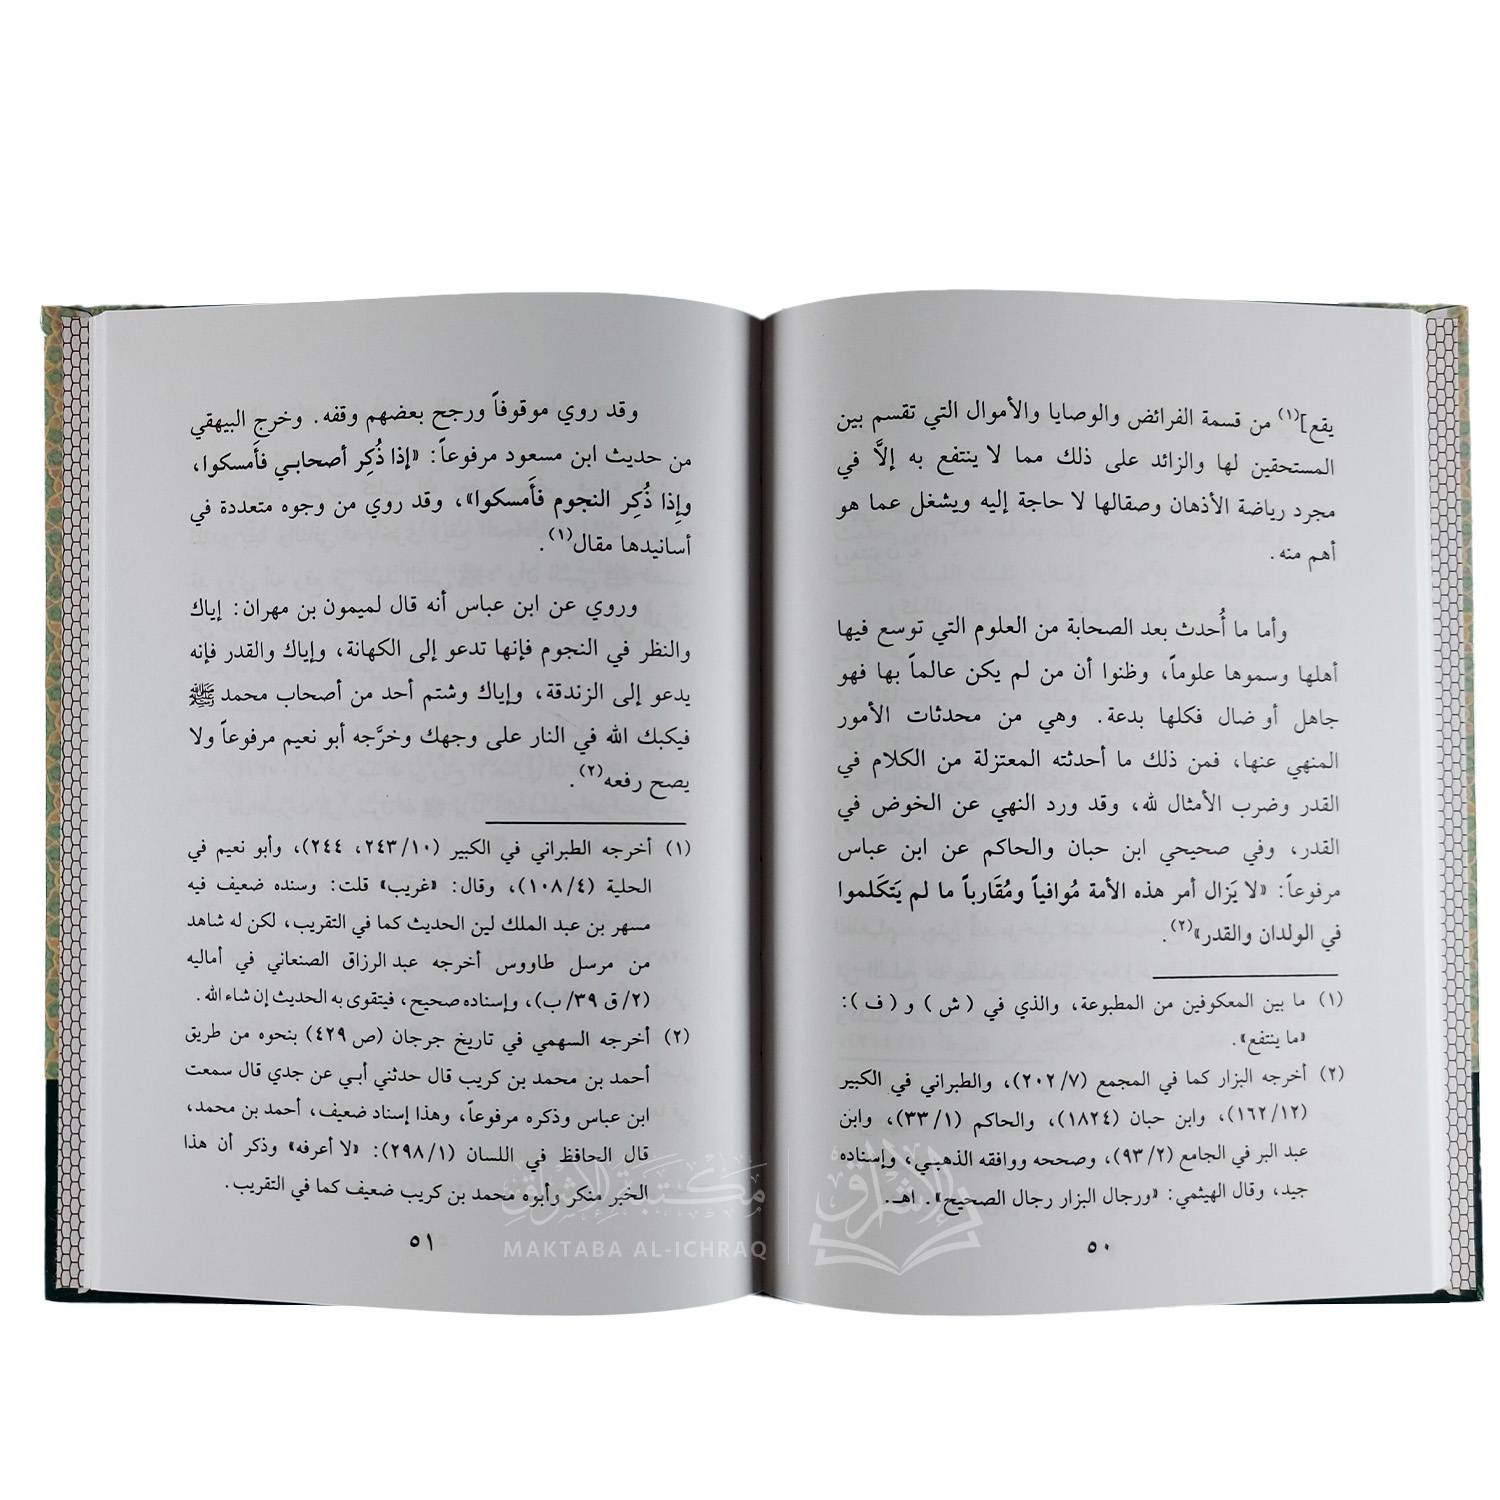 يقع](١) من قسمة الفرائض والوصايا والأموال التي تقسم بين
المستحقين لها والزائد على ذلك مما لا ينتفع به إلاَّ في
مجرد رياضة الأذهان وصقالها لا حاجة إليه ويشغل عما هو
أهم منه.
وأما ما أُحدث بعد الصحابة من العلوم التي توسع فيها
أهلها وسموها علوماً، وظنوا أن من لم يكن عالماً بها فهو
جاهل أو ضال فكلها بدعة. وهي من محدثات الأمور
المنهي عنها، فمن ذلك ما أحدثته المعتزلة من الكلام في
القدر وضرب الأمثال لله، وقد ورد النهي عن الخوض في
القدر، وفي صحيحي ابن حبان والحاكم عن ابن عباس
مرفوعاً: «لا يَزال أمر هذه الأمة مُوافياً ومُقَارباً ما لم يَتَكَلموا
في الولدان والقدر»(٢).
(١) ما بين المعكوفين من المطبوعة، والذي في (ش) و (ف):
«ما ينتفع».
(٢) أخرجه البزار كما في المجمع (٧/ ٢٠٢)، والطبراني في الكبير
(١٢/ ١٦٢)، وابن حبان (١٨٢٤)، والحاكم (١/ ٣٣)، وابن
عبد البر في الجامع (٢/ ٩٣)، وصححه ووافقه الذهبي، وإسناده
جيد، وقال الهيثمي: «ورجال البزار رجال الصحيح». اهـ.
٥٠
وقد روي موقوفاً ورجح بعضهم وقفه. وخرج البيهقي
من حديث ابن مسعود مرفوعاً: «إذا ذُكِر أصحابي فأَمسكوا،
وإِذا ذُكِر النجوم فأَمسكوا»، وقد روي من وجوه متعددة في
أسانيدها مقال(١).
وروي عن ابن عباس أنه قال لميمون بن مهران: إياك
والنظر في النجوم فإنها تدعو إلى الكهانة، وإياك والقدر فإنه
يدعو إلى الزندقة، وإياك وشتم أحد من أصحاب محمد ﷺ
فيكبك الله في النار على وجهك وخرَّجه أبو نعيم مرفوعاً ولا
يصح رفعه(٢).
(١) أخرجه الطبراني في الكبير (١٠/ ٢٤٣، ٢٤٤)، وأبو نعيم في
الحلية (٤/ ١٠٨)، وقال: «غريب» قلت: وسنده ضعيف فيه
مسهر بن عبد الملك لين الحديث كما في التقريب، لكن له شاهد
من مرسل طاووس أخرجه عبد الرزاق الصنعاني في أماليه
(٢/ ق ٣٩/ ب)، وإسناده صحيح، فيتقوى به الحديث إن شاء الله.
(٢) أخرجه السهمي في تاريخ جرجان (ص ٤٢٩) بنحوه من طريق
أحمد بن محمد بن كريب قال حدثني أبي عن جدي قال سمعت
ابن عباس وذكره مرفوعاً، وهذا إسناد ضعيف، أحمد بن محمد،
قال الحافظ في اللسان (١/ ٢٩٨): «لا أعرفه» وذكر أن هذا
الخبر منكر وأبوه محمد بن كريب ضعيف كما في التقريب.
٥١
مكتبة الإشراق
MAKTABA AL-ICHRAQ
الإشراق